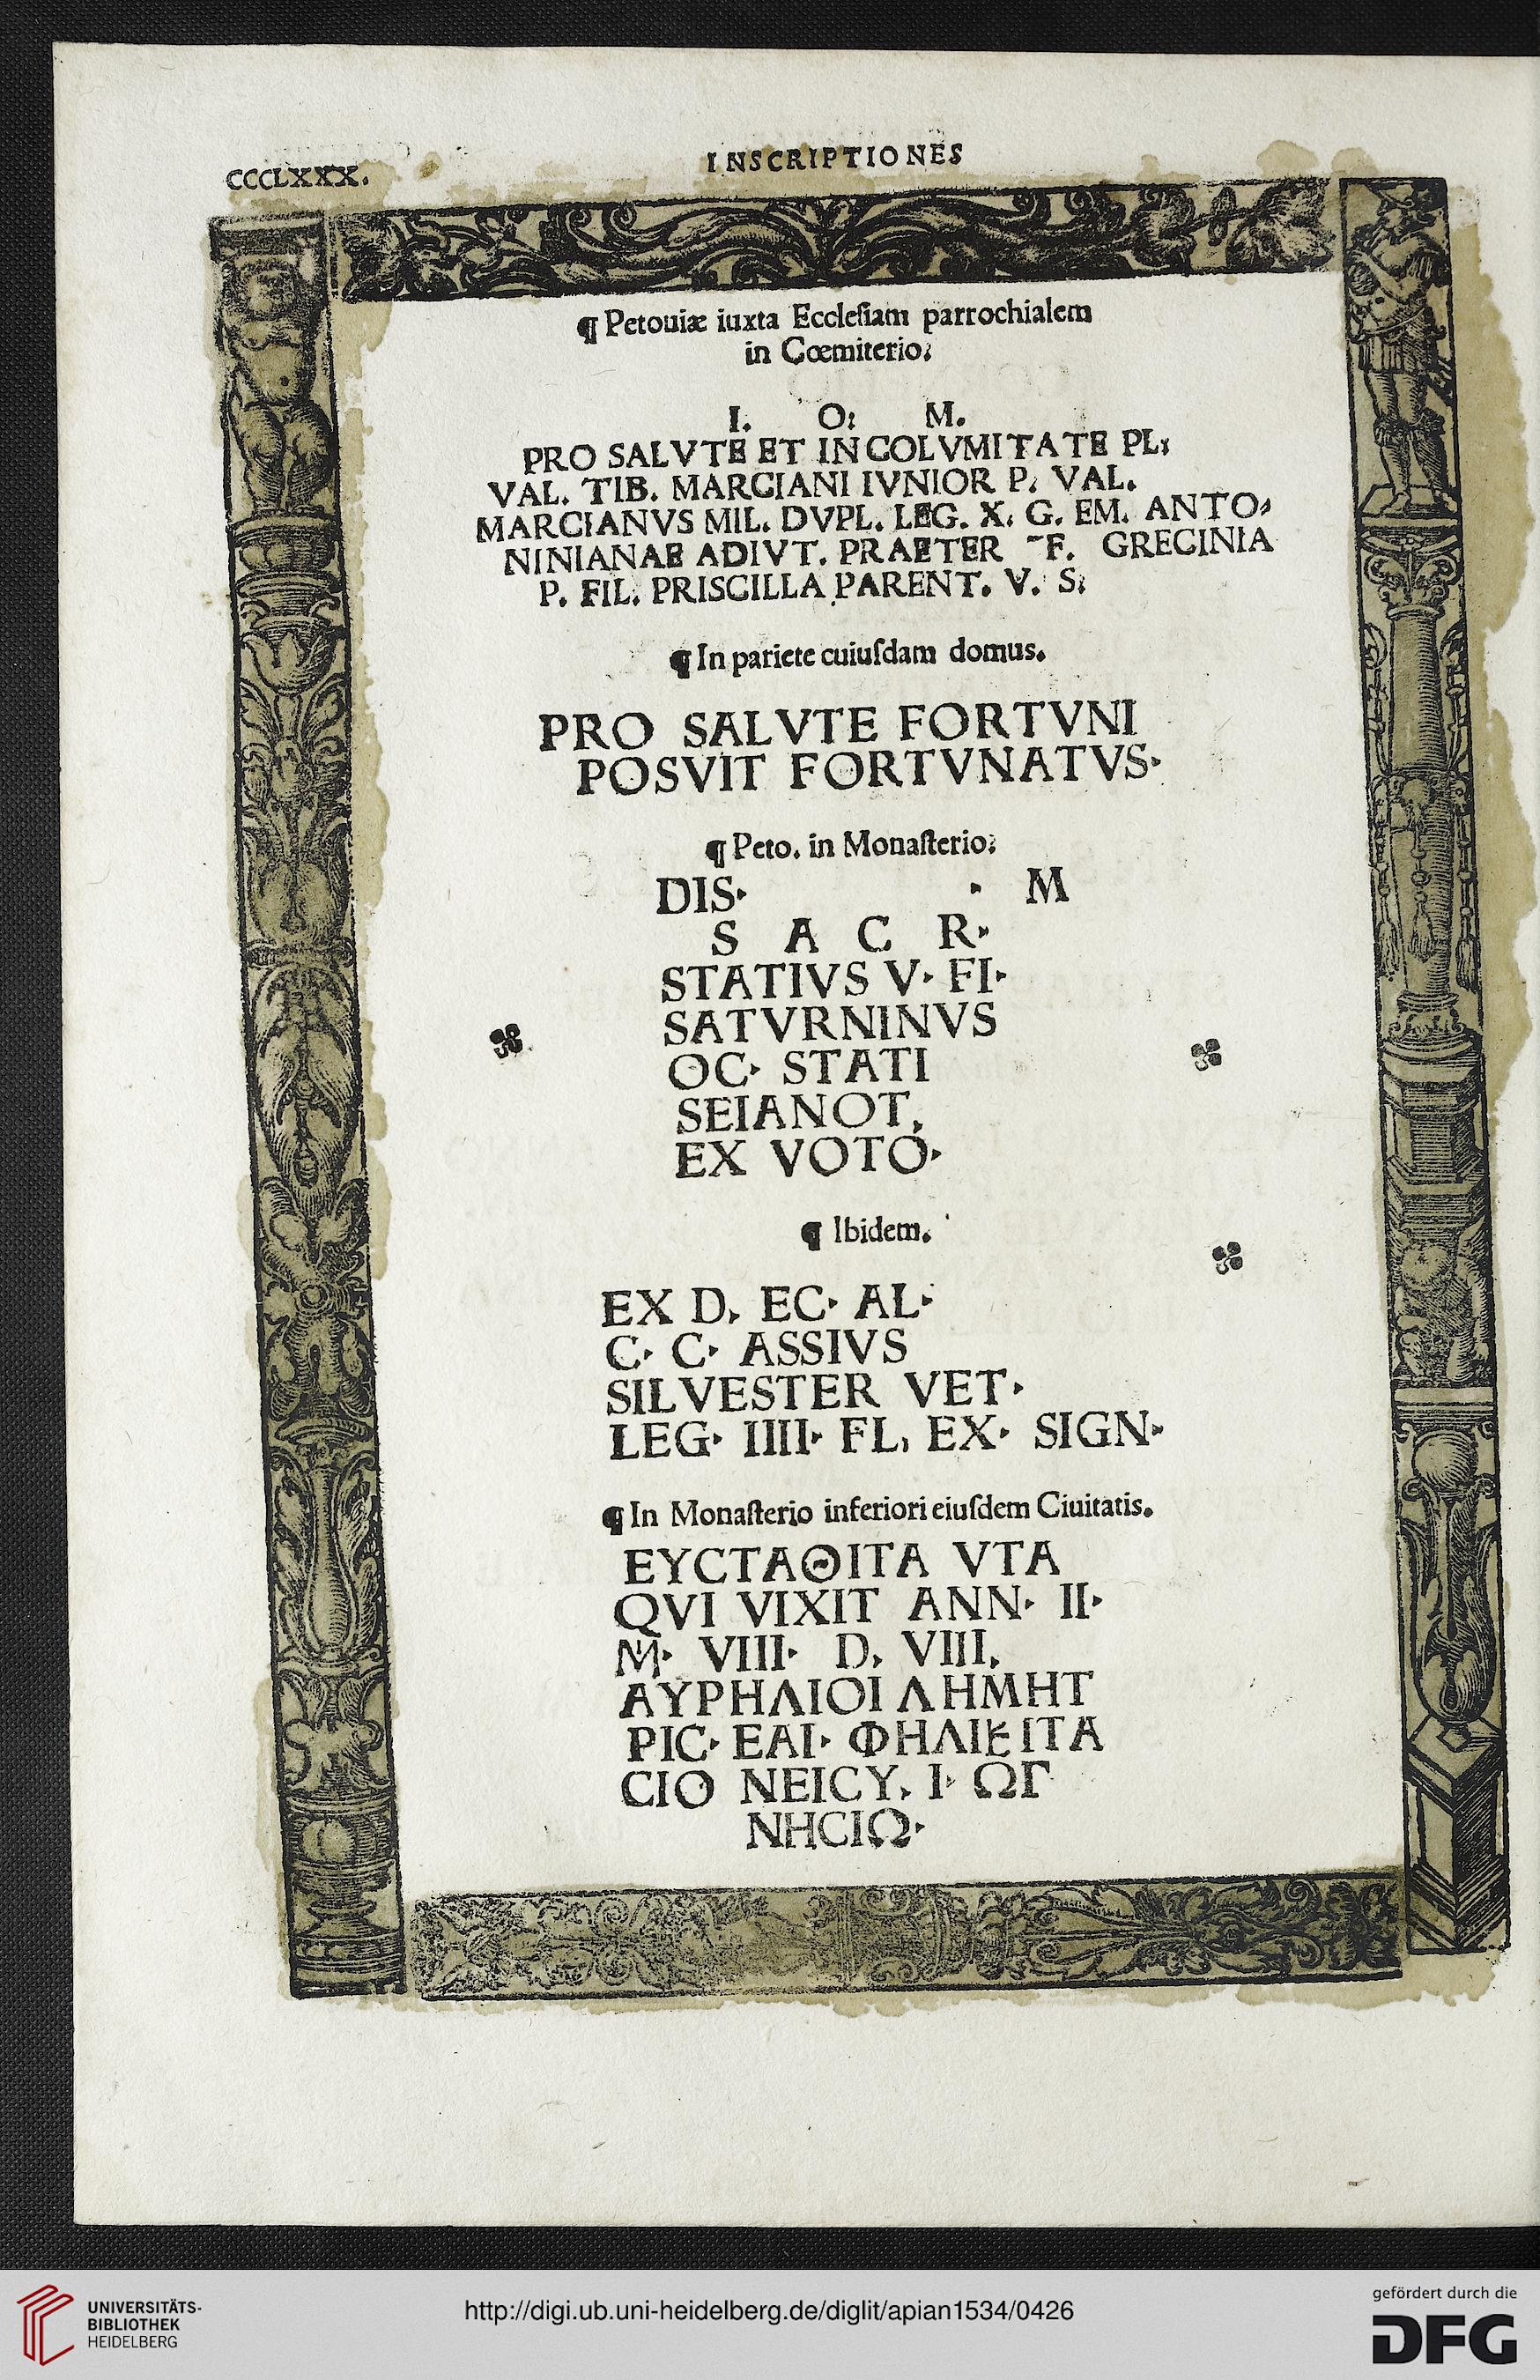 CCCLXXX.
INSCRIPTIONES
¶ Petouiæ iuxta Eccleſiam parrochialem
in Cœmiterio:
I. O: M.
PRO SALVTE ET INCOLVMITATE PL:
VAL. TIB. MARCIANI IVNIOR P. VAL.
MARCIANVS MIL. DVPL. LEG. X. G. EM. ANTO⸗
NINIANAE ADIVT. PRAETER ¯F. GRECINIA
P. FIL. PRISCILLA PARENT. V. S:
¶ In pariete cuiuſdam domus.
PRO SALVTE FORTVNI
POSVIT FORTVNATVS·
¶ Peto. in Monaſterio:
DIS· · M
S A C R·
STATIVS V· FI·
SATVRNINVS
OC· STATI
SEIANOT,
EX VOTO·
¶ Ibidem.
EX D, EC· AL·
C· C· ASSIVS
SILVESTER VET·
LEG· IIII· FL, EX· SIGN·
¶ In Monaſterio inferiori eiuſdem Ciuitatis.
ΕΥCΤΑΘΙΤΑ VTA
QVI VIXIT ANN· II·
M· VIII· D, VIII,
ΑΥΡΗΛΙΟΙ ΛΗΜΗΤ
ΡΙC· ΕΑΙ· ΦΗΛΙΚΙΤΑ
CΙΟ ΝΕΙCΥ, Ι· ΩΓ
ΝΗCΙΩ·
UNIVERSITÄTS-
BIBLIOTHEK
HEIDELBERG
http://digi.ub.uni-heidelberg.de/diglit/apian1534/0426
gefördert durch die
DFG